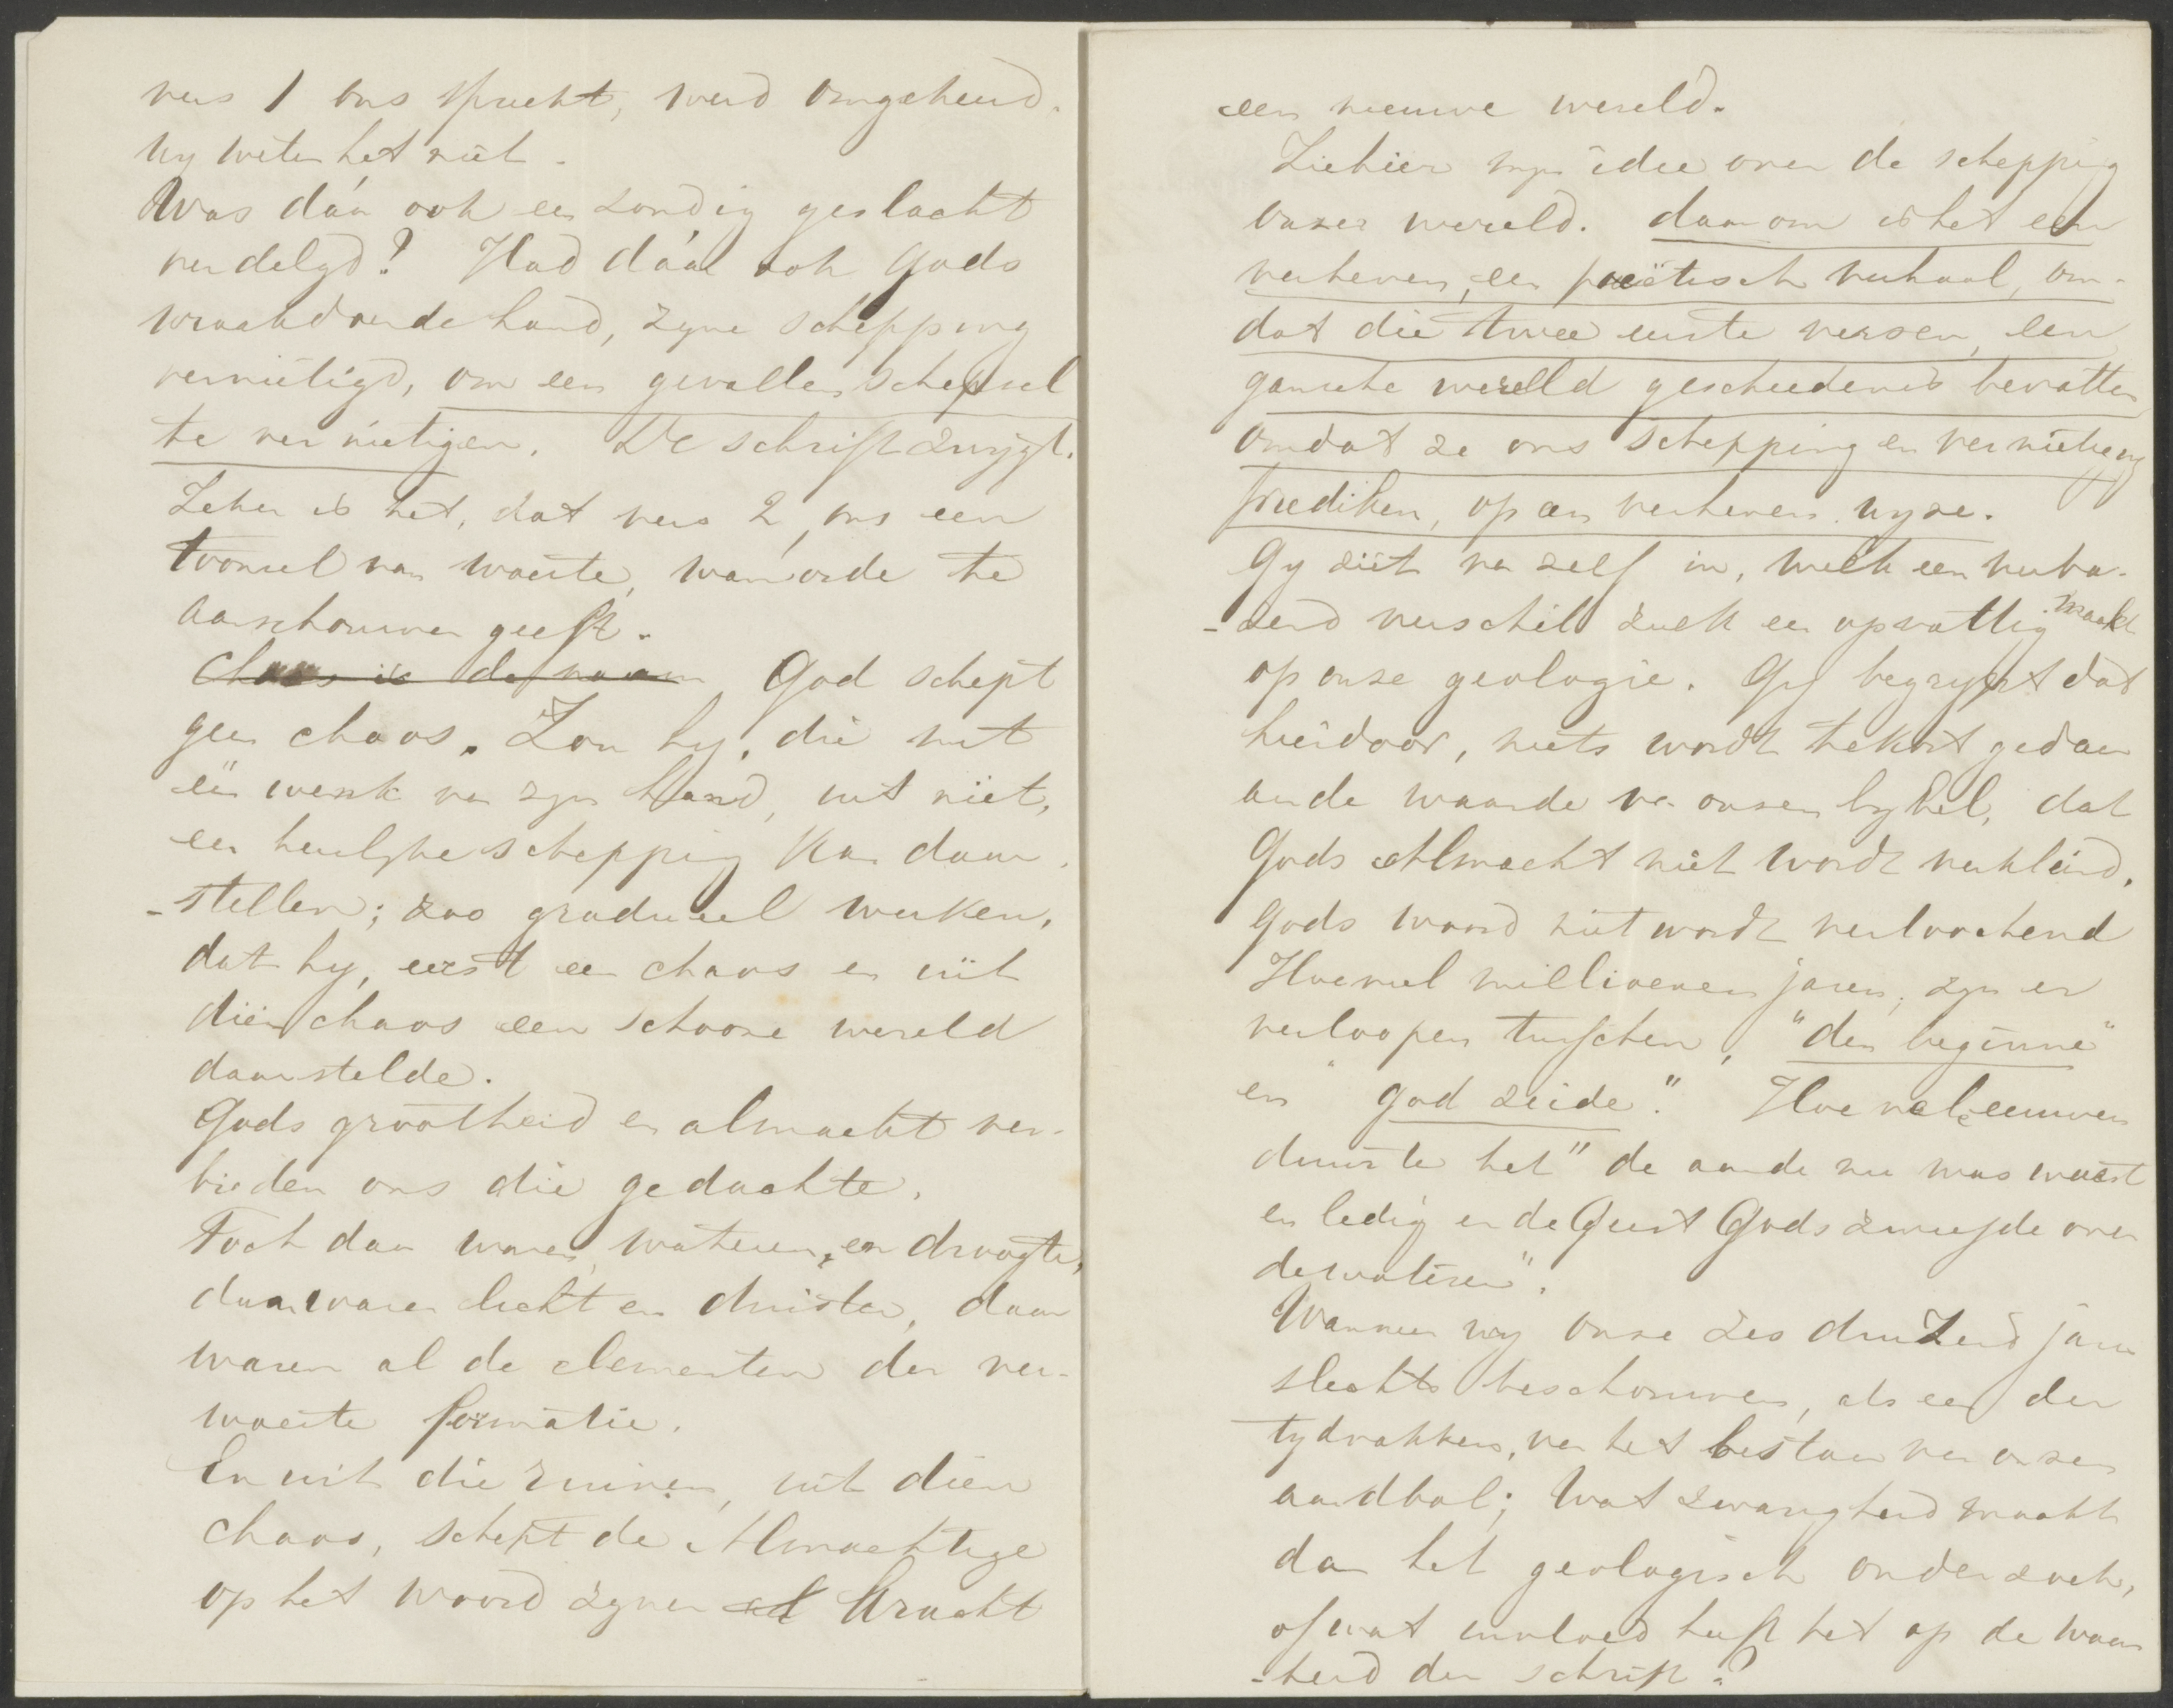 vers 1 ons spreekt, werd omgekeerd.
Wy weten het niet.
Was dáár ook een zondig geslacht
verdelgd? Had dáár ook Gods
wraakdoende hand, zyne schepping
vernietigd, om een gevallen schepsel
te vernietigen. De schrift zwijgt.
Zeker is het, dat vers 2, ons een
tooneel van woeste, wanorde te
aanschouwen geeft.
Chaos is de naam God schept
geen chaos. Zou hy, die met
één wenk van zyn hand, uit niet,
een heerlyke schepping kan daar-
-stellen; zoo gradueel werken,
dat hy, eerst een chaos en uit
dien chaos een schoone wereld
daarstelde.
Gods grootheid en almacht ver-
bieden ons die gedachte.
Toch daar waren, wateren, en droogte,
daar waren licht en duister, daar
waren al de elementen der ver-
woeste formatie.
En uit die ruinen, uit dien
chaos, schept de Almachtige
op het woord zyner kracht
een nieuwe wereld.
Ziehier myn idee over de schepping
onzer wereld. daarom is het een
verheven, een poëtisch verhaal, om-
dat die twee eerste verzen, een
gansche wereld geschiedenis bevatten,
omdat ze ons schepping en vernieting
prediken, op een verheven wyze.
Gy ziet van zelf in, welk een verba-
-zend verschil zulk een opvatting maakt
op onze geologie. Gy begrypt dat
hierdoor, niets wordt tekort gedaan
aan de waarde van onzen bybel, dat
Gods Almacht niet wordt verkleind,
Gods woord niet wordt verloochend
Hoeveel millioenen jaren, zyn er
verloopen tusschen, "den beginne"
en "God zeide". Hoe vele eeuwen
duurde het "de aarde nu was woest
en ledig en de Geest Gods zweefde over
de wateren".
Wanneer wy onze zes duizend jaren
slechts beschouwen, als een der
tydvakken, van het bestaan van onzen
aardbol; Wat zwarigheid maakt
dan het geologisch onderzoek,
of wat invloed heeft het op de waar
-heid der schrift?